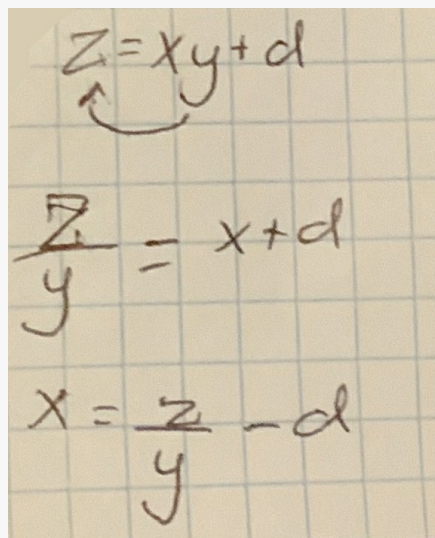 z = xy + d
z/y = x + d
x = z/y - d